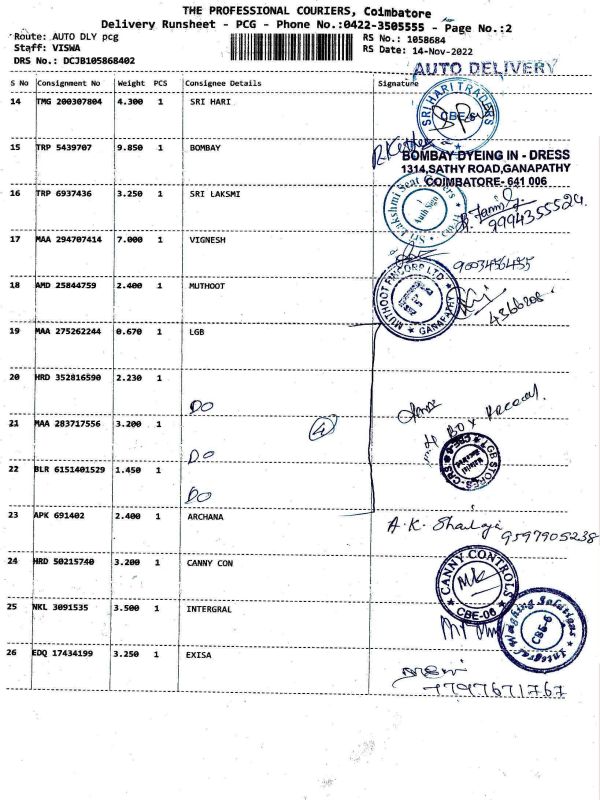 THE PROFESSIONAL COURIERS, Coimbatore
Delivery Runsheet - PCG - Phone No.:0422-3505555 - Page No.:2
Route: AUTO DLY pcg
RS No.: 1058684
Staff: VISWA
RS Date: 14-Nov-2022
DRS No.: DCJB105868402
AUTO DELIVERY
S No Consignment No Weight PCS Consignee Details Signature
14 TMG 200307804 4.300 1 SRI HARI
SRI HARI TRADERS CBE-6
15 TRP 5439707 9.850 1 BOMBAY
BOMBAY DYEING IN - DRESS
1314,SATHY ROAD,GANAPATHY
COIMBATORE- 641 006
16 TRP 6937436 3.250 1 SRI LAKSMI
Sri Lakshmi Seat Covers
Auth Sign
9994355524
17 MAA 294707414 7.000 1 VIGNESH
9003456455
18 AMD 25844759 2.400 1 MUTHOOT
MUTHOOT FINCORP LTD GANAPATHY
4366208
19 MAA 275262244 0.670 1 LGB
20 HRD 352816590 2.230 1
DO
21 MAA 283717556 3.200 1
4
DO
BOX
22 BLR 6151401529 1.450 1
DO
LGB STORES-CBS CBE-6
23 APK 691402 2.400 1 ARCHANA
A.K. 9597905238
24 HRD 50215740 3.200 1 CANNY CON
CANNY CONTROLS CBE-06
MK
25 NKL 3091535 3.500 1 INTERGRAL
Integral Weighing Solutions CBE-6
26 EDQ 17434199 3.250 1 EXISA
7797671767